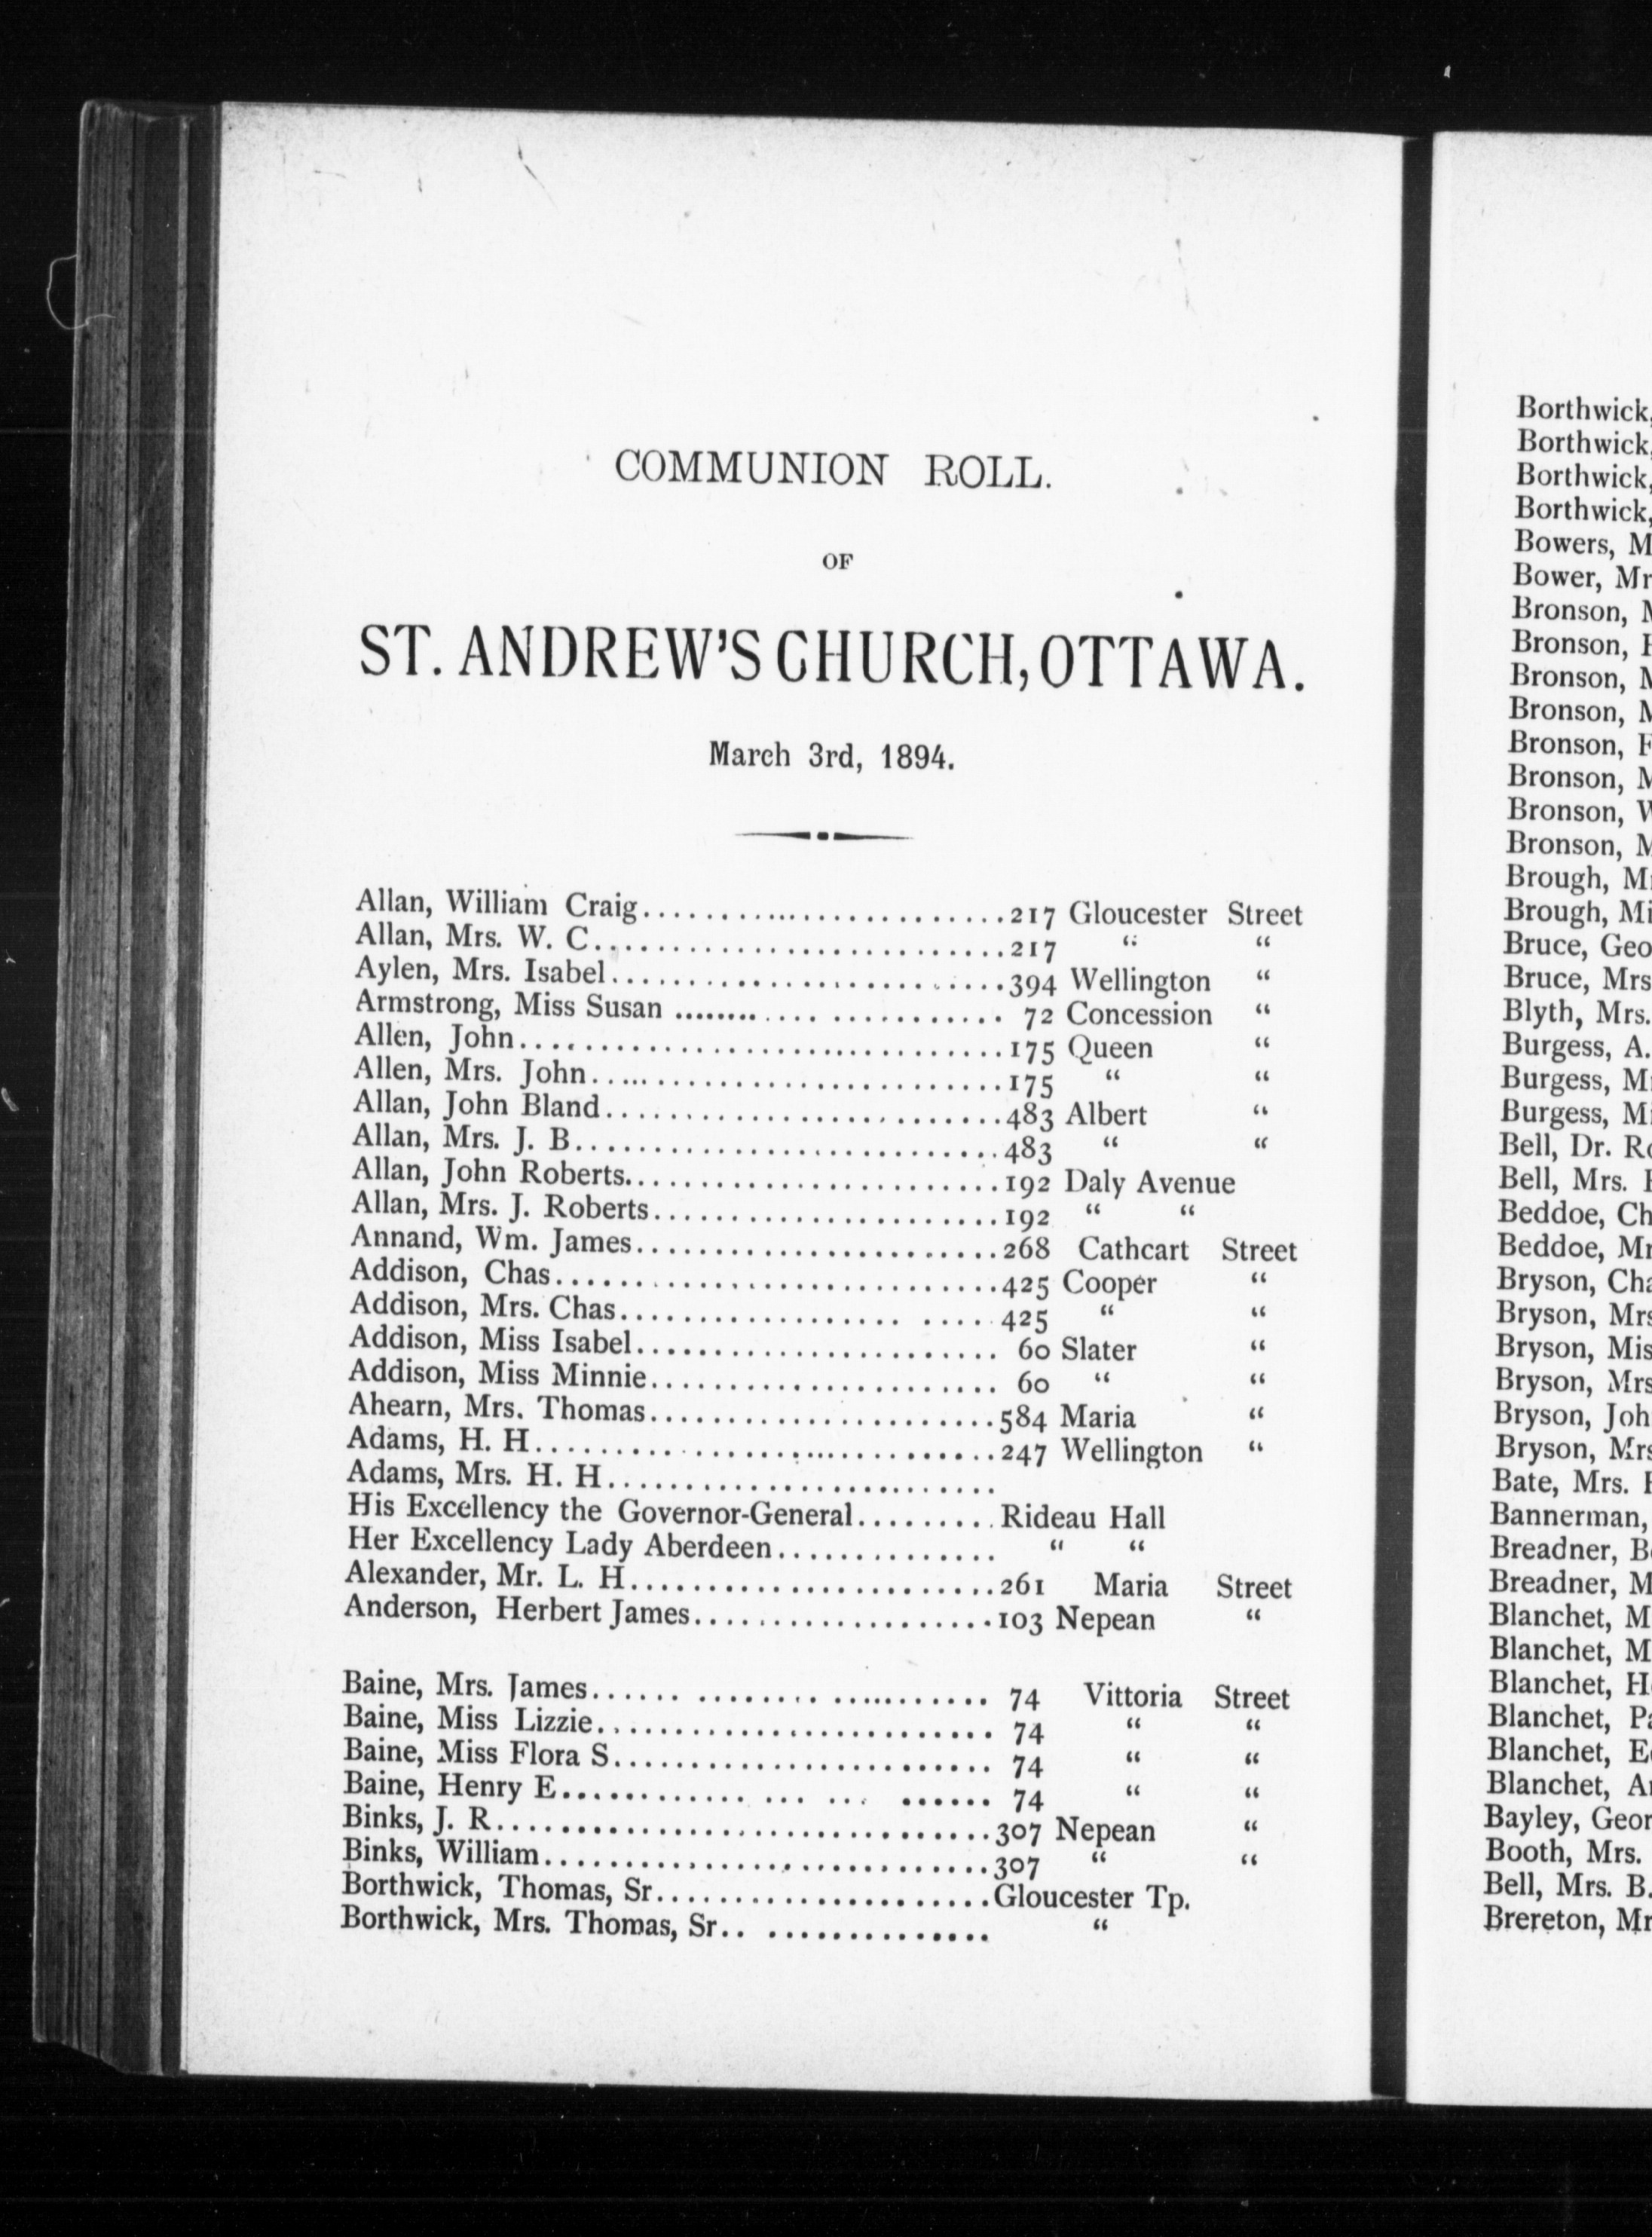 COMMUNION ROLL.
OF
ST. ANDREW'S CHURCH, OTTAWA.
March 3rd, 1894.
Allan, William Craig..........................217 Gloucester Street
Allan, Mrs. W. C..............................217 “ “
Aylen, Mrs. Isabel............................394 Wellington “
Armstrong, Miss Susan ........................ 72 Concession “
Allen, John...................................175 Queen “
Allen, Mrs. John..............................175 “ “
Allan, John Bland.............................483 Albert “
Allan, Mrs. J. B..............................483 “ “
Allan, John Roberts...........................192 Daly Avenue
Allan, Mrs. J. Roberts........................192 “ “
Annand, Wm. James.............................268 Cathcart Street
Addison, Chas.................................425 Cooper “
Addison, Mrs. Chas............................425 “ “
Addison, Miss Isabel.......................... 60 Slater “
Addison, Miss Minnie.......................... 60 “ “
Ahearn, Mrs. Thomas...........................584 Maria “
Adams, H. H...................................247 Wellington “
Adams, Mrs. H. H............................
His Excellency the Governor-General..........Rideau Hall
Her Excellency Lady Aberdeen............... “ “
Alexander, Mr. L. H...........................261 Maria Street
Anderson, Herbert James.......................103 Nepean “
Baine, Mrs. James............................. 74 Vittoria Street
Baine, Miss Lizzie............................ 74 “ “
Baine, Miss Flora S........................... 74 “ “
Baine, Henry E................................ 74 “ “
Binks, J. R...................................307 Nepean “
Binks, William................................307 “ “
Borthwick, Thomas, Sr........................Gloucester Tp.
Borthwick, Mrs. Thomas, Sr.. .............. “
Borthwick,
Borthwick,
Borthwick,
Borthwick,
Bowers, M
Bower, Mr
Bronson, M
Bronson, H
Bronson, M
Bronson, M
Bronson, F
Bronson, M
Bronson, W
Bronson, M
Brough, Mr
Brough, Mi
Bruce, Geo
Bruce, Mrs
Blyth, Mrs.
Burgess, A.
Burgess, M
Burgess, Mi
Bell, Dr. Ro
Bell, Mrs.
Beddoe, Ch
Beddoe, Mr
Bryson, Cha
Bryson, Mrs
Bryson, Mis
Bryson, Mrs
Bryson, Joh
Bryson, Mrs
Bate, Mrs.
Bannerman,
Breadner, B
Breadner, M
Blanchet, M
Blanchet, M
Blanchet, H
Blanchet, Pa
Blanchet, E
Blanchet, A
Bayley, Geor
Booth, Mrs.
Bell, Mrs. B.
Brereton, Mr